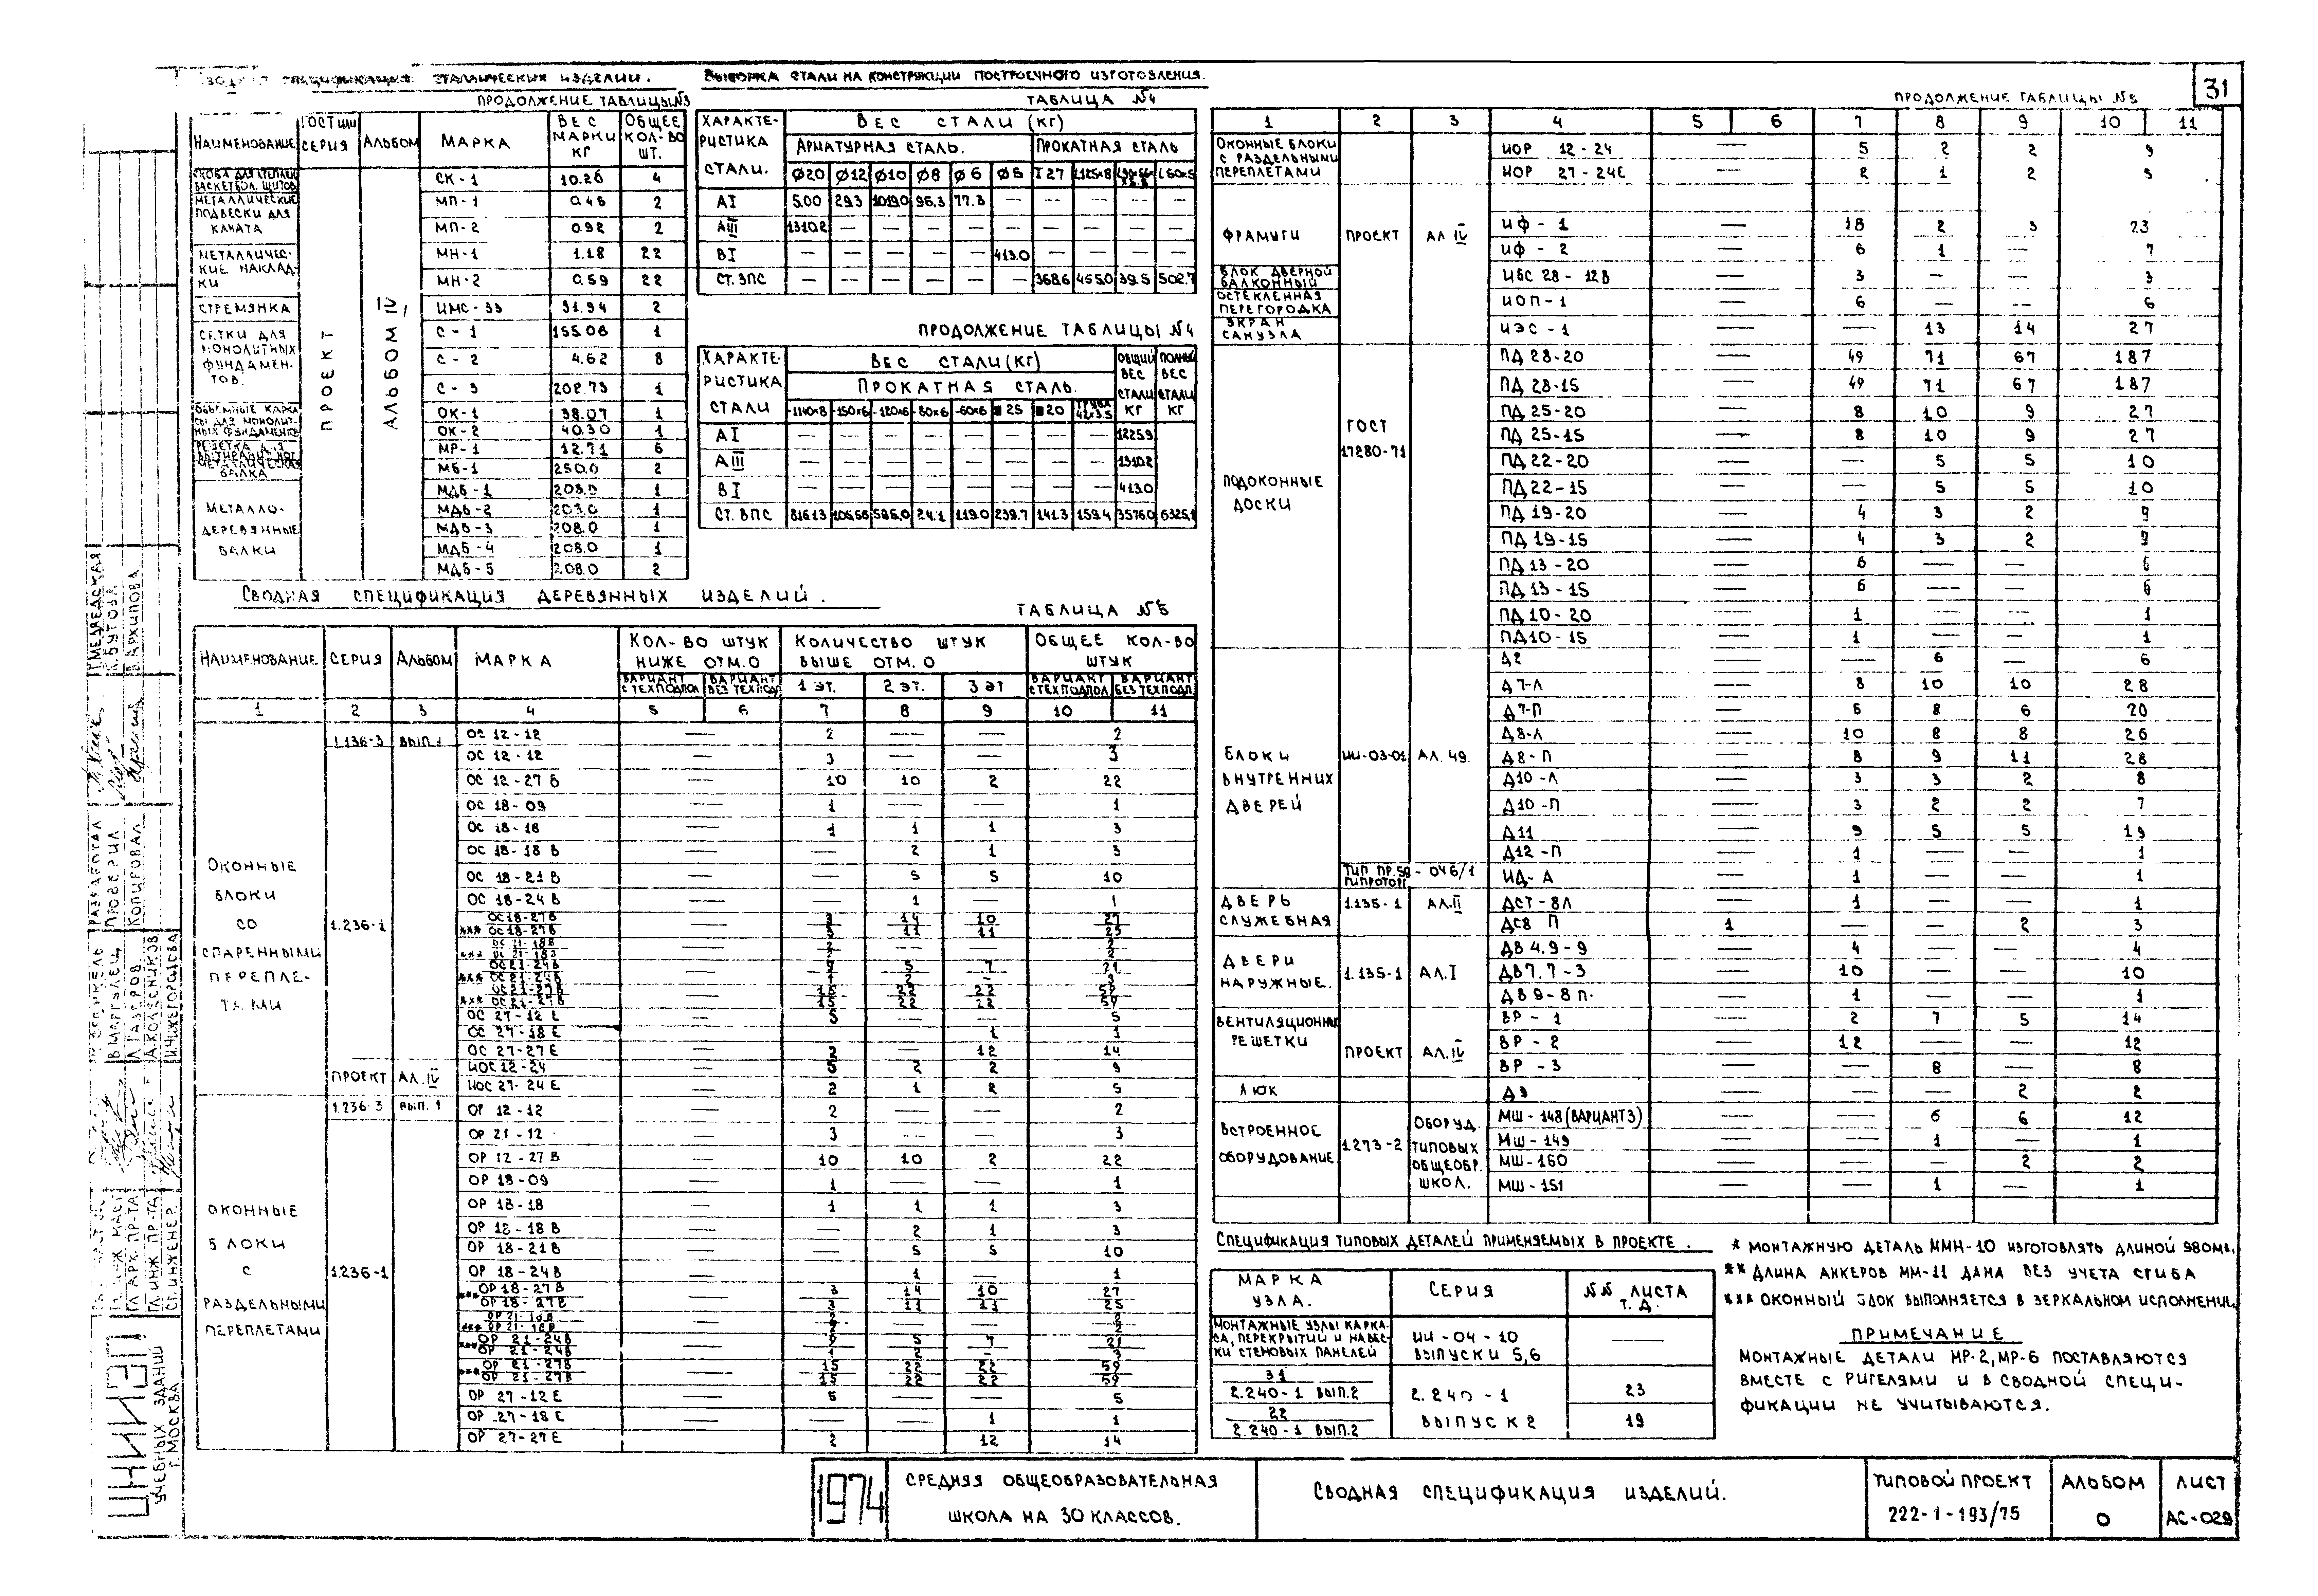 31
СПЕЦИФИКАЦИЯ МЕТАЛЛИЧЕСКИХ ИЗДЕЛИЙ.
ПРОДОЛЖЕНИЕ ТАБЛИЦЫ №3
НАИМЕНОВАНИЕ | ГОСТ ИЛИ СЕРИЯ | АЛЬБОМ | МАРКА | ВЕС МАРКИ КГ | ОБЩЕЕ КОЛ-ВО ШТ.
ПРОЕКТ | АЛЬБОМ IV
СК-1 10.26 4
МЕТАЛЛИЧЕСКИЕ ПОДВЕСКИ ДЛЯ КАНАТА
МП-1 0.45 2
МП-2 0.92 2
МЕТАЛЛИЧЕС-КИЕ НАКЛАД-КИ
МН-1 1.18 22
МН-2 0.59 22
СТРЕМЯНКА ИМС-33 31.94 2
СЕТКИ ДЛЯ МОНОЛИТНЫХ ФУНДАМЕН-ТОВ.
С-1 155.06 1
С-2 4.62 8
С-3 208.73 1
ОБЪЕМНЫЕ КАРКА-СЫ ДЛЯ МОНОЛИТ-НЫХ ФУНДАМЕНТ
ОК-1 38.07 1
ОК-2 40.30 1
МР-1 12.71 6
МЕТАЛЛИЧЕСКАЯ БАЛКА МБ-1 250.0 2
МЕТАЛЛО-ДЕРЕВЯННЫЕ БАЛКИ
МДБ-1 203.0 1
МДБ-2 203.0 1
МДБ-3 208.0 1
МДБ-4 208.0 1
МДБ-5 208.0 2
ВЫБОРКА СТАЛИ НА КОНСТРУКЦИИ ПОСТРОЕЧНОГО ИЗГОТОВЛЕНИЯ.
ТАБЛИЦА №4
ХАРАКТЕ-РИСТИКА СТАЛИ. | ВЕС СТАЛИ (КГ)
АРМАТУРНАЯ СТАЛЬ. | ПРОКАТНАЯ СТАЛЬ
Ø20 Ø12 Ø10 Ø8 Ø6 Ø5 I27 L125×8 L60×5
АI 5.00 29.3 1019.0 95.3 77.8 — — — — —
АIII 1310.2 — — — — — — — — —
ВI — — — — — 413.0 — — — —
СТ.3ПС — — — — — — 368.6 465.0 39.5 502.7
ПРОДОЛЖЕНИЕ ТАБЛИЦЫ №4
ХАРАКТЕ-РИСТИКА СТАЛИ | ВЕС СТАЛИ (КГ) | ОБЩИЙ ВЕС СТАЛИ КГ | ПОЛНЫЙ ВЕС СТАЛИ КГ
ПРОКАТНАЯ СТАЛЬ.
-1140×8 -150×6 -120×6 -80×6 -60×6 ■25 ■20 ТРУБА 42×3.5
АI — — — — — — — — 1225.9
АIII — — — — — — — — 1310.2
ВI — — — — — — — — 413.0
СТ. ВПС 816.13 106.56 595.0 24.1 119.0 239.7 141.3 159.4 3576.0 6325.1
СВОДНАЯ СПЕЦИФИКАЦИЯ ДЕРЕВЯННЫХ ИЗДЕЛИЙ.
ТАБЛИЦА №5
НАИМЕНОВАНИЕ | СЕРИЯ | АЛЬБОМ | МАРКА | КОЛ-ВО ШТУК НИЖЕ ОТМ.0 | КОЛИЧЕСТВО ШТУК ВЫШЕ ОТМ.0 | ОБЩЕЕ КОЛ-ВО ШТУК
ВАРИАНТ С ТЕХПОДПОЛ | ВАРИАНТ БЕЗ ТЕХПОД | 1 ЭТ. | 2 ЭТ. | 3 ЭТ | ВАРИАНТ С ТЕХПОДПОЛ. | ВАРИАНТ БЕЗ ТЕХПОДП.
1 2 3 4 5 6 7 8 9 10 11
ОКОННЫЕ БЛОКИ СО СПАРЕННЫМИ ПЕРЕПЛЕ-ТАМИ
1.136-3 ВЫП.1 ОС 12-12 — 2 — — 2
ОС 12-12 — 3 — — 3
ОС 12-27 Б — 10 10 2 22
ОС 18-09 — 1 — — 1
ОС 18-18 — 1 1 1 3
ОС 18-18 В — — 2 1 3
ОС 18-21 В — — 5 5 10
ОС 18-24 В — — 1 — 1
1.236-1
ОС 18-27В — 3 14 10 27
*** ОС 18-27В — 3 11 11 25
ОС 21-18В — 2 — — 2
*** ОС 21-18В — 2 — — 2
ОС 21-24В — 9 5 7 21
*** ОС 21-24В — 1 2 — 3
ОС 21-27В — 15 22 22 59
*** ОС 21-27В — 15 22 22 59
ОС 27-12 Е — 5 — — 5
ОС 27-18 Е — — — 1 1
ОС 27-27 Е — 2 — 12 14
ПРОЕКТ АЛ.IV
ИОС 12-24 — 5 2 2 9
ИОС 27-24 Е — 2 1 2 5
ОКОННЫЕ БЛОКИ С РАЗДЕЛЬНЫМИ ПЕРЕПЛЕТАМИ
1.236-3 ВЫП. 1 ОР 12-12 — 2 — — 2
ОР 21-12 — 3 — — 3
ОР 12-27 В — 10 10 2 22
ОР 18-09 — 1 — — 1
ОР 18-18 — 1 1 1 3
ОР 18-18 В — — 2 1 3
ОР 18-21 В — — 5 5 10
1.236-1
ОР 18-24 В — — 1 — 1
ОР 18-27 В — 3 14 10 27
*** ОР 18-27В — 3 11 11 25
ОР 21-18 В — 2 — — 2
*** ОР 21-18 В — 2 — — 2
ОР 21-24В — 9 5 7 21
*** ОР 21-24В — 1 2 — 3
ОР 21-27В — 15 22 22 59
*** ОР 21-27В — 15 22 22 59
ОР 27-12 Е — 5 — — 5
ОР 27-18 Е — — — 1 1
ОР 27-27 Е — 2 — 12 14
ПРОДОЛЖЕНИЕ ТАБЛИЦЫ №5
1 2 3 4 5 6 7 8 9 10 11
ОКОННЫЕ БЛОКИ С РАЗДЕЛЬНЫМИ ПЕРЕПЛЕТАМИ
ИОР 12-24 — 5 2 2 9
ИОР 27-24Е — 2 1 2 5
ФРАМУГИ ПРОЕКТ АЛ IV
ИФ-1 — 18 2 3 23
ИФ-2 — 6 1 — 7
БЛОК ДВЕРНОЙ БАЛКОННЫЙ ИБС 28-12В — 3 — — 3
ОСТЕКЛЕННАЯ ПЕРЕГОРОДКА ИОП-1 — 6 — — 6
ЭКРАН САНУЗЛА ИЭС-1 — — 13 14 27
ПОДОКОННЫЕ ДОСКИ ГОСТ 17280-71
ПД 28-20 — 49 71 67 187
ПД 28-15 — 49 71 67 187
ПД 25-20 — 8 10 9 27
ПД 25-15 — 8 10 9 27
ПД 22-20 — — 5 5 10
ПД 22-15 — — 5 5 10
ПД 19-20 — 4 3 2 9
ПД 19-15 — 4 3 2 9
ПД 13-20 — 6 — — 6
ПД 13-15 — 6 — — 6
ПД 10-20 — 1 — — 1
ПД 10-15 — 1 — — 1
БЛОКИ ВНУТРЕННИХ ДВЕРЕЙ ИИ-03-02 АЛ. 49.
Д2 — — 6 — 6
Д7-Л — 8 10 10 28
Д7-П — 6 8 6 20
Д8-Л — 10 8 8 26
Д8-П — 8 9 11 28
Д10-Л — 3 3 2 8
Д10-П — 3 2 2 7
Д11 — 9 5 5 19
Д12-П — 1 — — 1
ТИП ПР.59-046/1 ГИПРОТОРГ ИД-А — 1 — — 1
ДВЕРЬ СЛУЖЕБНАЯ 1.135-1 АЛ.II
ДСТ-8Л — 1 — — 1
ДС8 П 1 — — 2 3
ДВЕРИ НАРУЖНЫЕ. 1.135-1 АЛ.I
ДВ 4.9-9 — 4 — — 4
ДВ7.7-3 — 10 — — 10
ДВ 9-8 П. — 1 — — 1
ВЕНТИЛЯЦИОННЫЕ РЕШЕТКИ ПРОЕКТ АЛ.IV
ВР-1 — 2 7 5 14
ВР-2 — 12 — — 12
ВР-3 — — 8 — 8
ЛЮК Д9 — — — 2 2
ВСТРОЕННОЕ ОБОРУДОВАНИЕ 1.273-2 ОБОРУД. ТИПОВЫХ ОБЩЕОБР. ШКОЛ.
МШ-148 (ВАРИАНТ 3) — — 6 6 12
МШ-149 — — 1 — 1
МШ-150 — — — 2 2
МШ-151 — — 1 — 1
СПЕЦИФИКАЦИЯ ТИПОВЫХ ДЕТАЛЕЙ ПРИМЕНЯЕМЫХ В ПРОЕКТЕ.
МАРКА УЗЛА. | СЕРИЯ | №№ ЛИСТА Т.Д.
МОНТАЖНЫЕ УЗЛЫ КАРКА-СА, ПЕРЕКРЫТИИ И НАВЕС-КИ СТЕНОВЫХ ПАНЕЛЕЙ | ИИ-04-10 ВЫПУСКИ 5,6 | —
31 / 2.240-1 ВЫП.2 | 2.240-1 ВЫПУСК 2 | 23
22 / 2.240-1 ВЫП.2 | 19
* МОНТАЖНУЮ ДЕТАЛЬ ММН-10 ИЗГОТОВЛЯТЬ ДЛИНОЙ 980ММ.
** ДЛИНА АНКЕРОВ ММ-11 ДАНА БЕЗ УЧЕТА СГИБА
*** ОКОННЫЙ БЛОК ВЫПОЛНЯЕТСЯ В ЗЕРКАЛЬНОМ ИСПОЛНЕНИИ
ПРИМЕЧАНИЕ
МОНТАЖНЫЕ ДЕТАЛИ МР-2, МР-6 ПОСТАВЛЯЮТСЯ
ВМЕСТЕ С РИГЕЛЯМИ И В СВОДНОЙ СПЕЦИ-
ФИКАЦИИ НЕ УЧИТЫВАЮТСЯ.
1974
СРЕДНЯЯ ОБЩЕОБРАЗОВАТЕЛЬНАЯ
ШКОЛА НА 30 КЛАССОВ.
СВОДНАЯ СПЕЦИФИКАЦИЯ ИЗДЕЛИЙ.
ТИПОВОЙ ПРОЕКТ
222-1-193/75
АЛЬБОМ
0
ЛИСТ
АС-029
ЦНИИЭП
УЧЕБНЫХ ЗДАНИЙ
Г. МОСКВА
ГЛ АРХ. ПР-ТА
ГЛ.ИНЖ ПР-ТА
СТ.ИНЖЕНЕР.
В МАРГУЛЕЦ
Л ГАВЕРОВ
А КОЛЕСНИКОВ
И НИЖЕГОРОДОВА
РАЗРАБОТАЛ
ПРОВЕРИЛ
КОПИРОВАЛ
МЕДВЕДСКАЯ
БУТОВА
АРХИПОВА